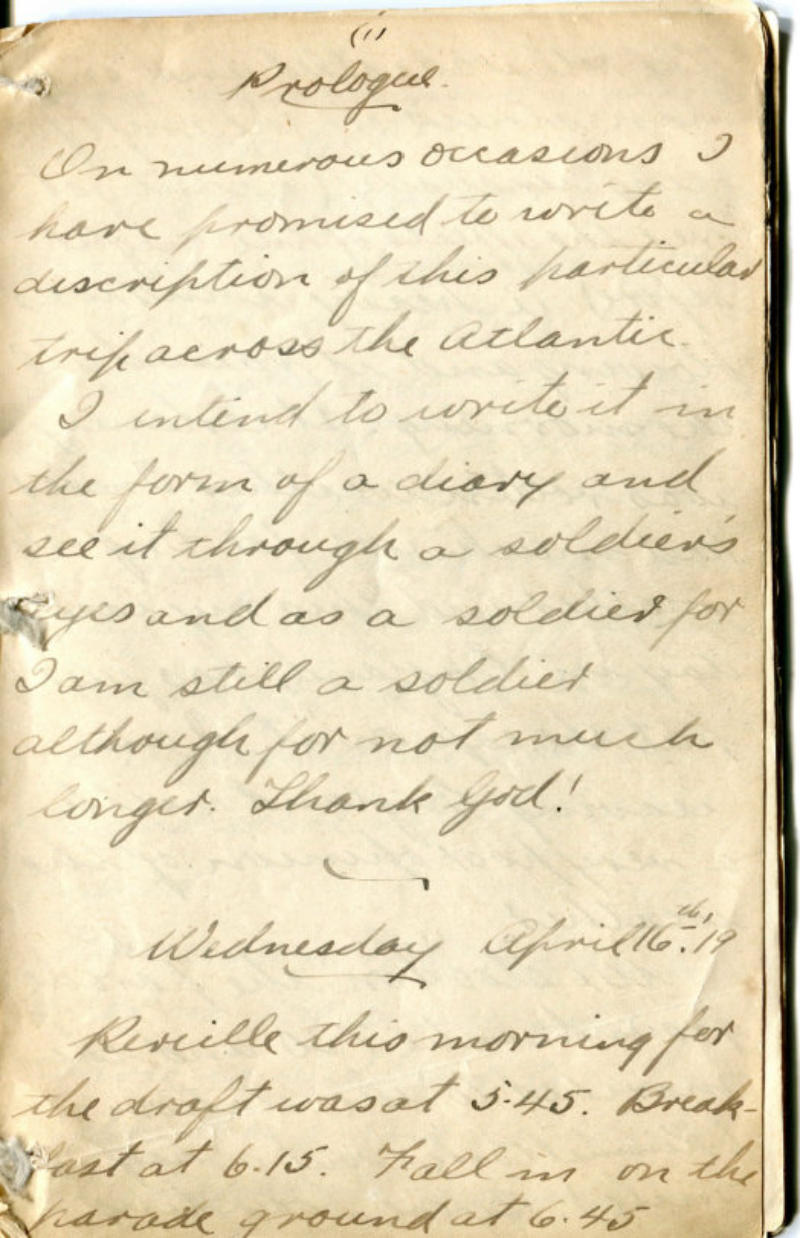 (1)
Prologue.
On numerous occasions I
have promised to write a
discription of this particular
trip across the Atlantic.
I intend to write it in
the form of a diary and
see it through a soldier's
eyes and as a soldier for
I am still a soldier
although for not much
longer. Thank God!
Wednesday April 16th '19
Reveille this morning for
the draft was at 5.45. Break-
fast at 6.15. Fall in on the
parade ground at 6.45